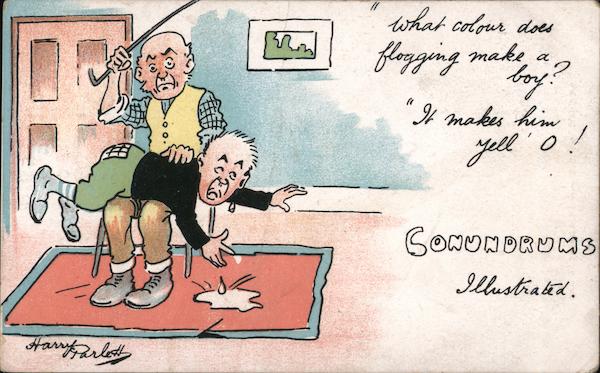 "What colour does
flogging make a
boy?
"It makes him
yell 'O!
CONUNDRUMS
Illustrated.
Harry Parlett